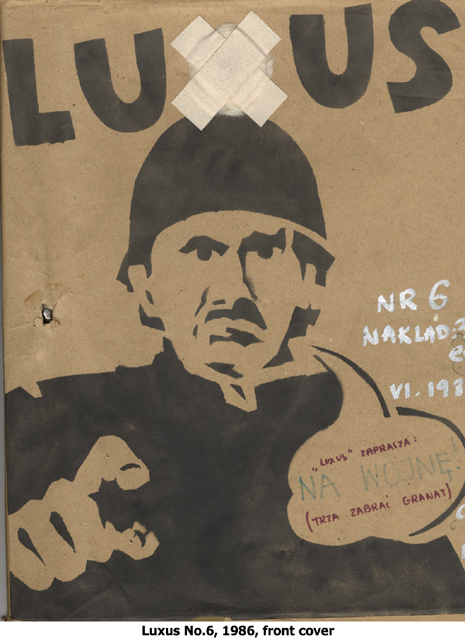 LUXUS
NR 6
NAKŁAD
VI.198
„LUXUS" ZAPRASZA:
NA WOJNĘ!
(TRZA ZABRAĆ GRANAT)
Luxus No.6, 1986, front cover